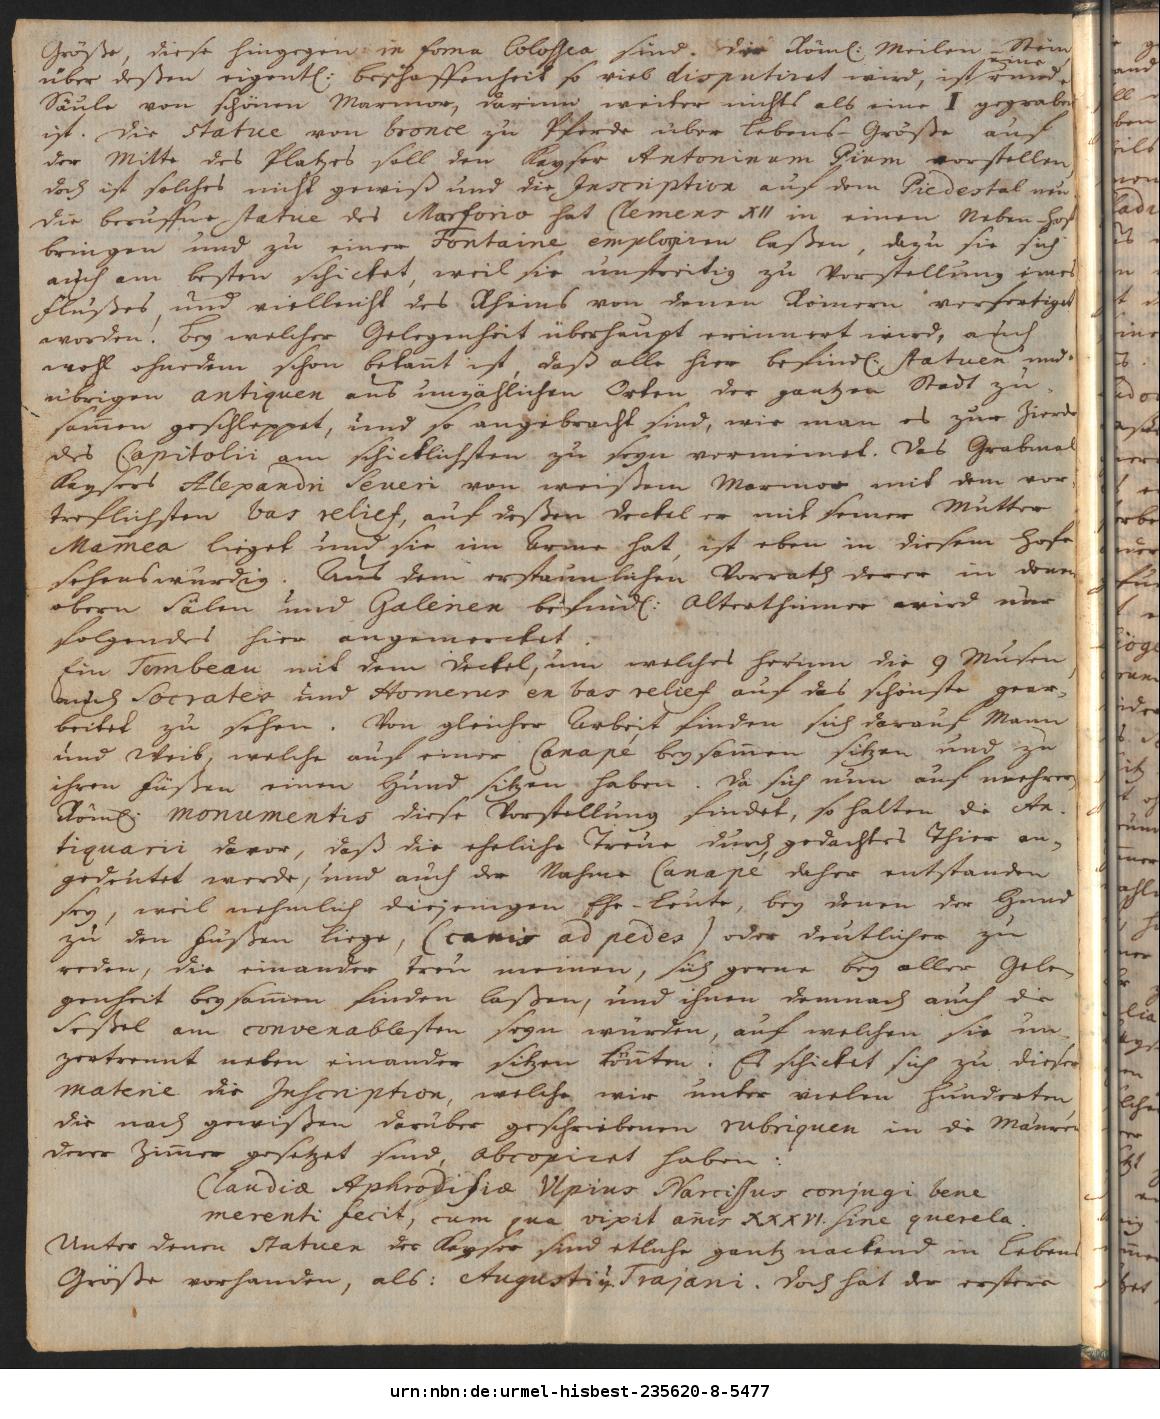 Größe, diese hingegen in forma Colossea sind. Die Röml: Meilen-Stein
über deßen eigentl: beschaffenheit so viel disputiret wird, ist eine rund
Säule von schönen Marmor, darinn weiter nichts als eine I gegraben
ist. Die Statue von bronce zu Pferde über Lebens-Größe auf
der Mitte des Platzes soll den Kayser Antoninum Pium vorstellen,
doch ist solches nicht gewiß und die Inscription auf dem Piedestal neu
die beruffne statue des Marforio hat Clemens XII in einen Neben-Hof
bringen und zu einer Fontaine emploiren laßen, dazu sie sich
auch am besten schicket, weil sie unstreitig zu Vorstellung eines
Flußes, und vielleicht des Rheins von denen Römern verfertiget
worden. Bey welcher Gelegenheit überhaupt erinnert wird, auch
wohl ohnedem schon bekañt ist, daß alle hier befindl: statuen und
übrigen antiquen aus unzählichen Orten der gantzen Stadt zu-
sam̃en geschleppet, und so angebracht sind, wie man es zur Zierde
des Capitolii am schicklichsten zu seyn vermeinet. Das Grabmal
Kaysers Alexandri Severi von weißem Marmor mit dem vor-
treflichsten bas relief, auf deßen Deckel er mit seiner Mutter
Mam̃ea lieget und sie im Arme hat, ist eben in diesem Hofe
sehenswürdig. Aus dem erstaunlichen Vorrath derer in denen
obern Sälen und Galerien befindl: Alterthümer wird nur
folgendes hier angemercket.
Ein Tombeau mit dem Deckel, um welches herum die 9 Musen
auch Socrates und Homerus en bas relief auf das schönste gear-
beitet zu sehen. Von gleicher Arbeit finden sich darauf Mann
und Weib, welche auf einer Canape beysam̃en sitzen und zu
ihren Füßen einen Hund sitzen haben. Da sich nun auf mehrern
Röml: monumentis diese Vorstellung findet, so halten die An-
tiquarii davor, daß die eheliche Treue durch gedachtes Thier an-
gedeutet werde, und auch der Nahme Canape daher entstanden
sey, weil nehmlich diejenigen Ehe-Leute, bey denen der Hund
zu den Füßen liege, (canis ad pedes) oder deutlicher zu
reden, die einander treu meinen, sich gerne bey aller Gele-
genheit beysam̃en finden laßen, und ihnen demnach auch die
Seßel am convenablesten seyn würden, auf welchen sie un-
zertrennt neben einander sitzen kön̄ten. Es schicket sich zu dieser
materie die Inscription, welche wir unter vielen hunderten,
die nach gewißen darüber geschriebenen rubriquen in die Mauren
derer Zim̃er gesetzet sind, abcopiret haben:
Claudiæ Aphrodisiæ Ulpius Narcissus conjugi bene
merenti fecit, cum qua vixit añis XXXVI. sine querela.
Unter denen Statuen der Kayser sind etliche gantz nackend in Lebens
Größe vorhanden, als: Augusti u. Trajani. Doch hat der erstere
urn:nbn:de:urmel-hisbest-235620-8-5477